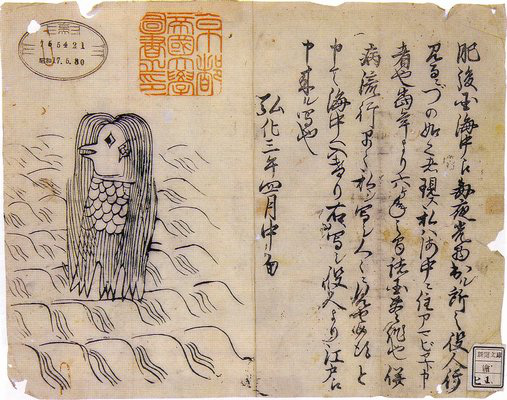 肥後国海中江毎夜光物出ル所之役人行
見るニづの如之者現ス私ハ海中ニ住アマビヱト申
者也当年より六ヶ年之間諸国豊作也併
病流行早々私シ写シ人々ニ見セ候得と
申て海中へ入けり右写シ役人より江戸江
申来ル写也
弘化三年四月中旬
京都
帝國大學
圖書之印
昭和17.6.30